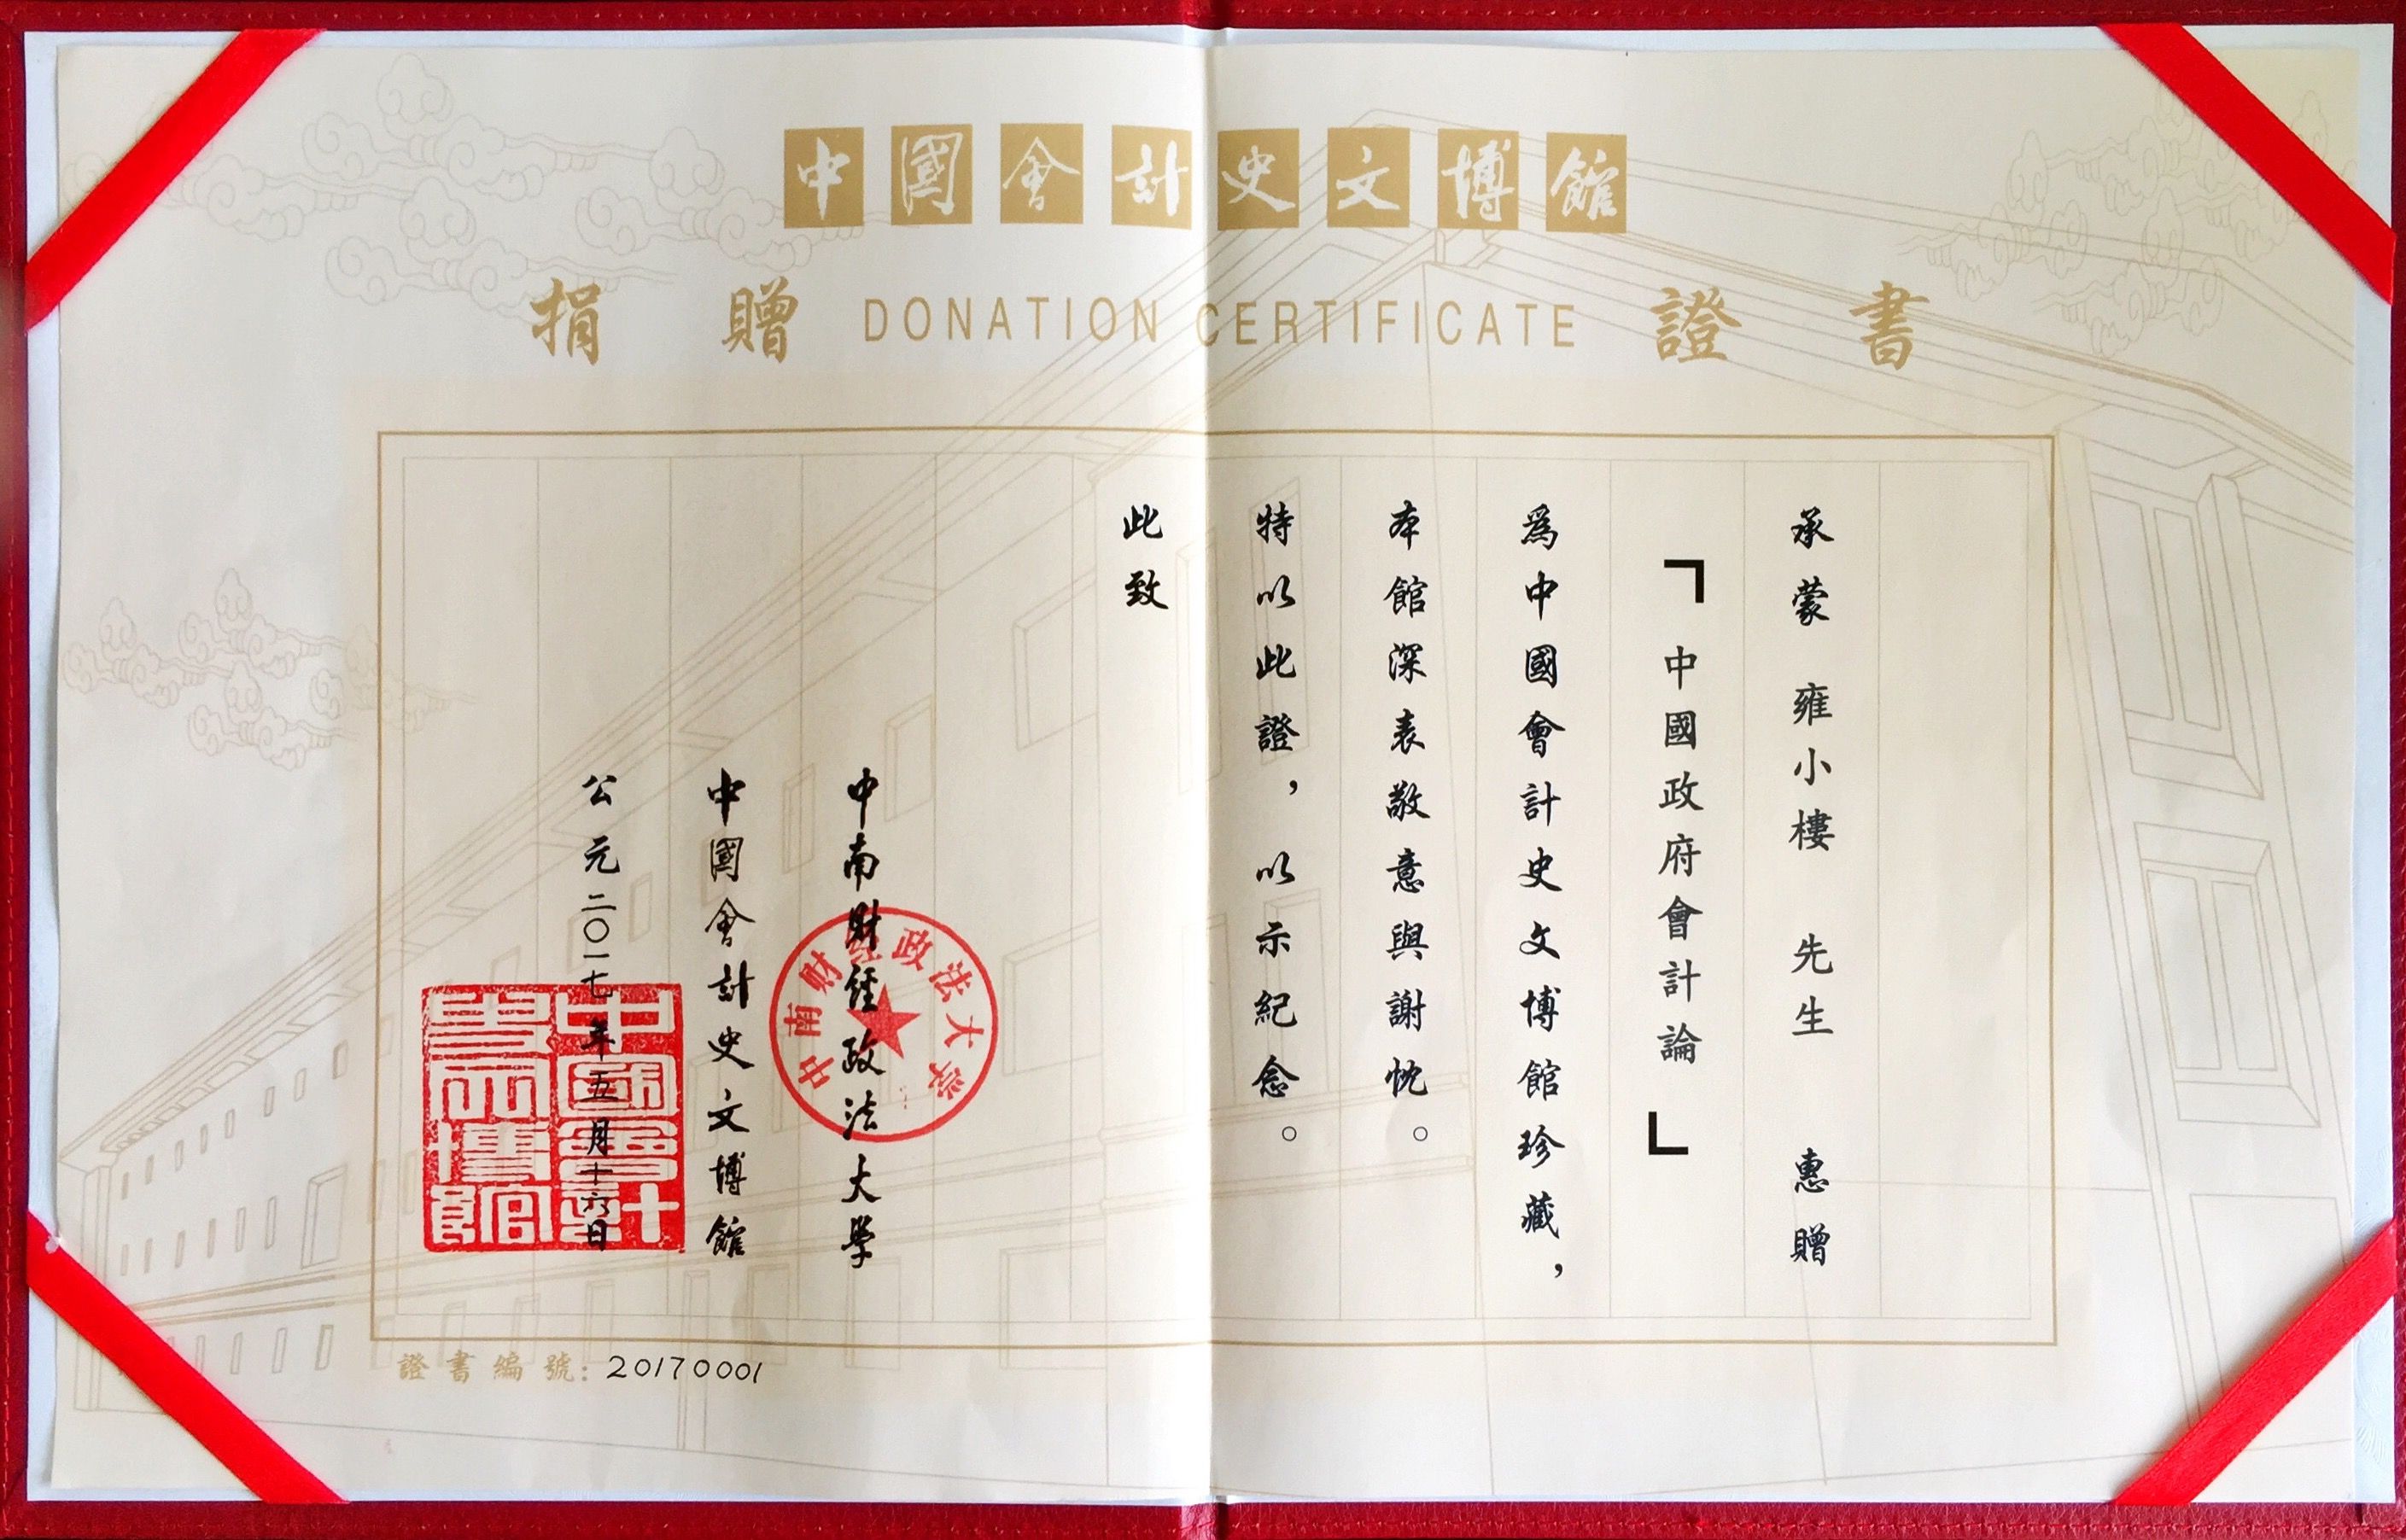 中國會計史文博館
捐贈 DONATION CERTIFICATE 證書
承蒙 雍小樓 先生 惠贈
「中國政府會計論」
爲中國會計史文博館珍藏，
本館深表敬意與謝忱。
特以此證，以示紀念。
此致
中南財經政法大學
中南财经政法大学
中國會計史文博館
公元二〇一七年五月十六日
中國會計史文博館
證書編號：20170001